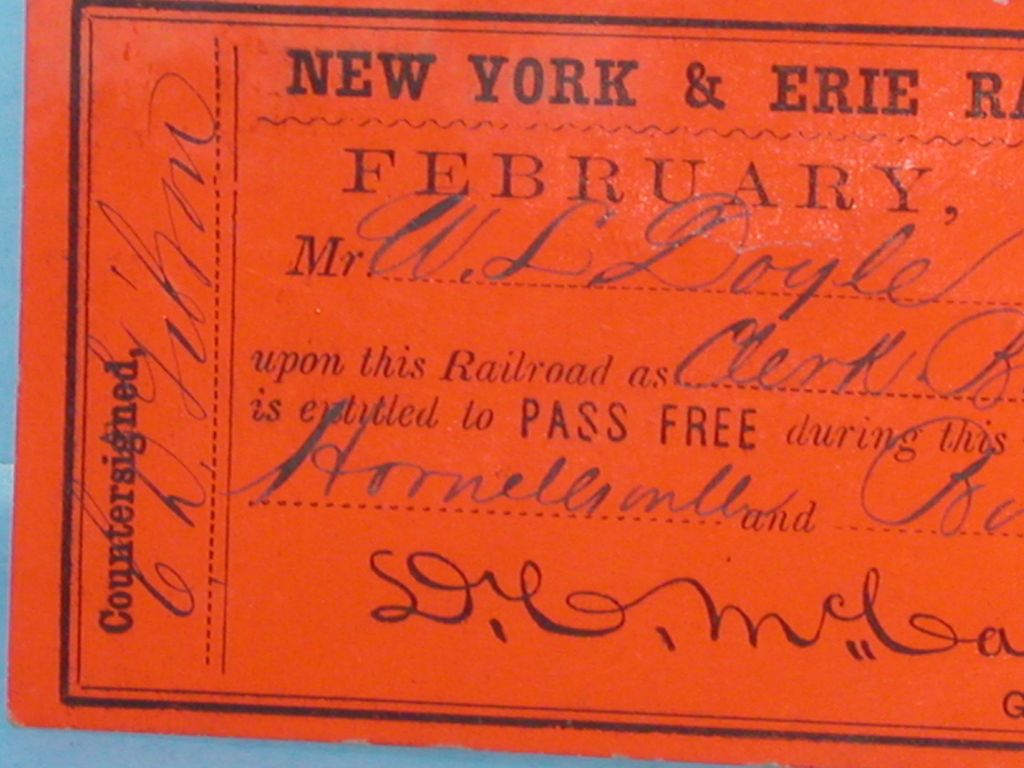 NEW YORK & ERIE RA
FEBRUARY,
Mr W. L Doyle
upon this Railroad as Clerk B
is entitled to PASS FREE during this
Hornellsville and Bu
D. C. McCa
G
Countersigned,